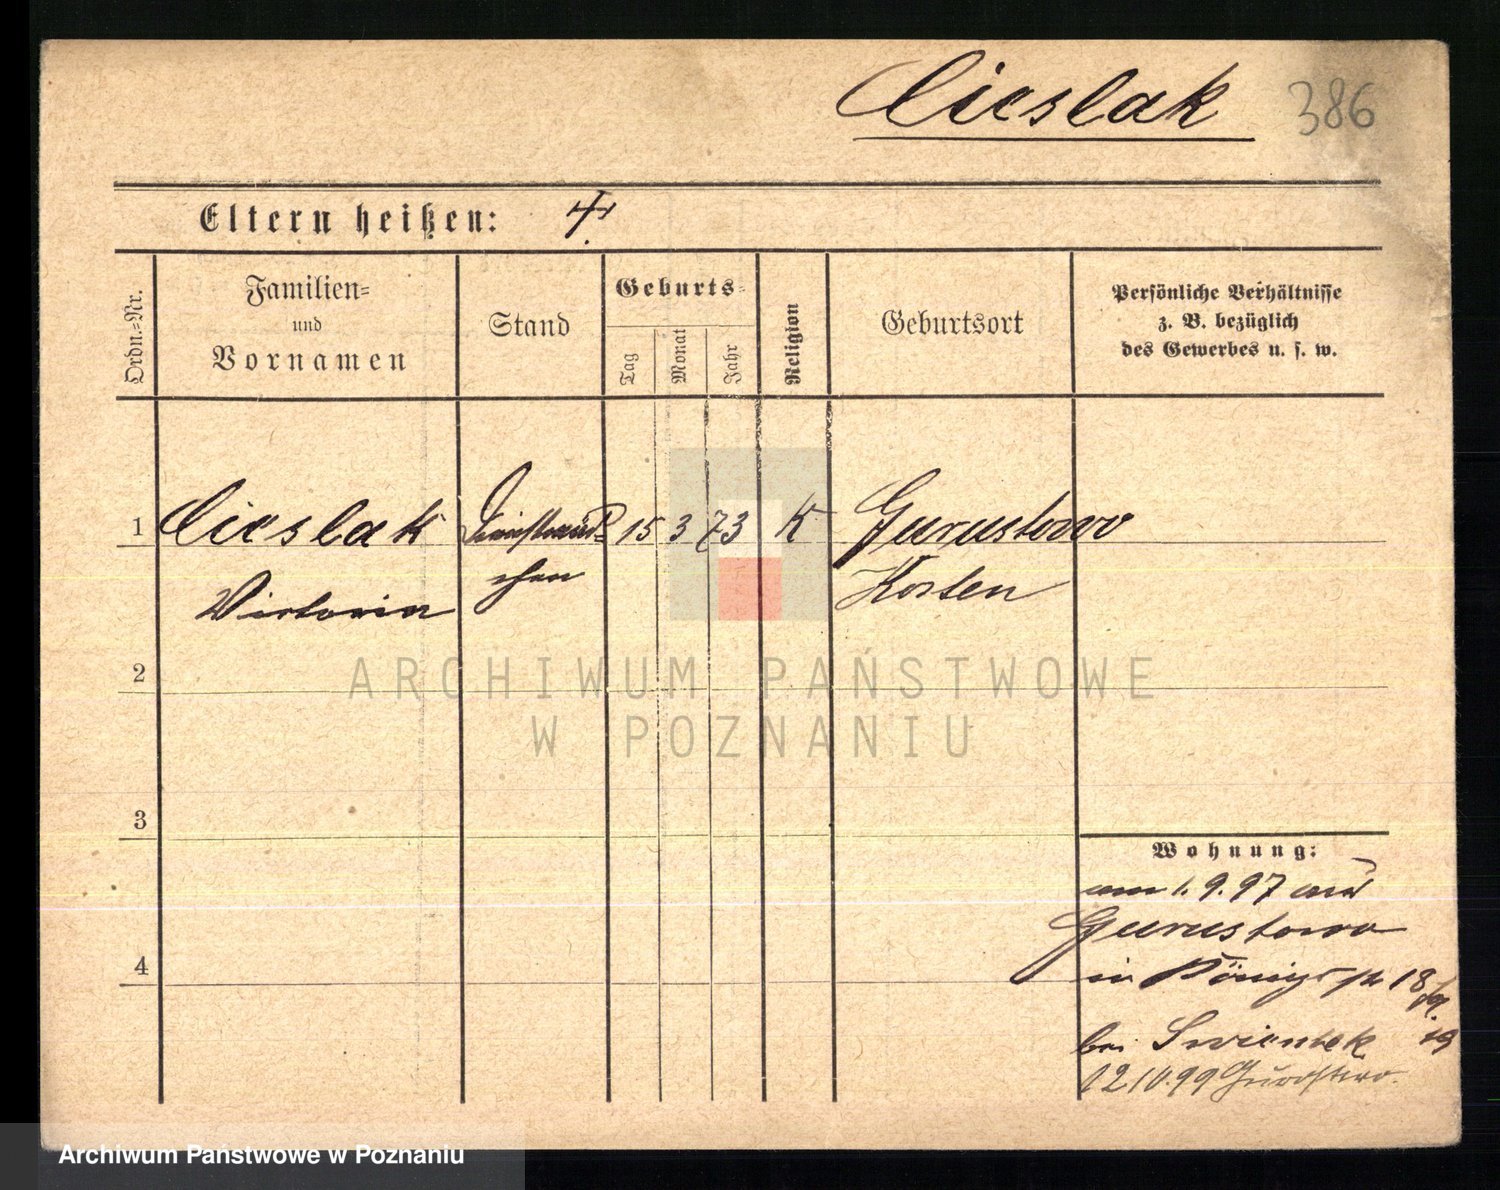 Cieslak 386
Eltern heißen:
Ordn.=Nr.
Familien=
und
Vornamen
Stand
Geburts=
Tag
Monat
Jahr
Religion
Geburtsort
Persönliche Verhältnisse
z. B. bezüglich
des Gewerbes u. s. w.
1 Cieslak 15 3 73 K Gurustowo
Victoria Kosten
2
ARCHIWUM PAŃSTWOWE
W POZNANIU
3
Wohnung:
am 1.9.97 aus
Gurustowo
4
in Königs 18
bei Swientek 19
12.10.99
Archiwum Państwowe w Poznaniu